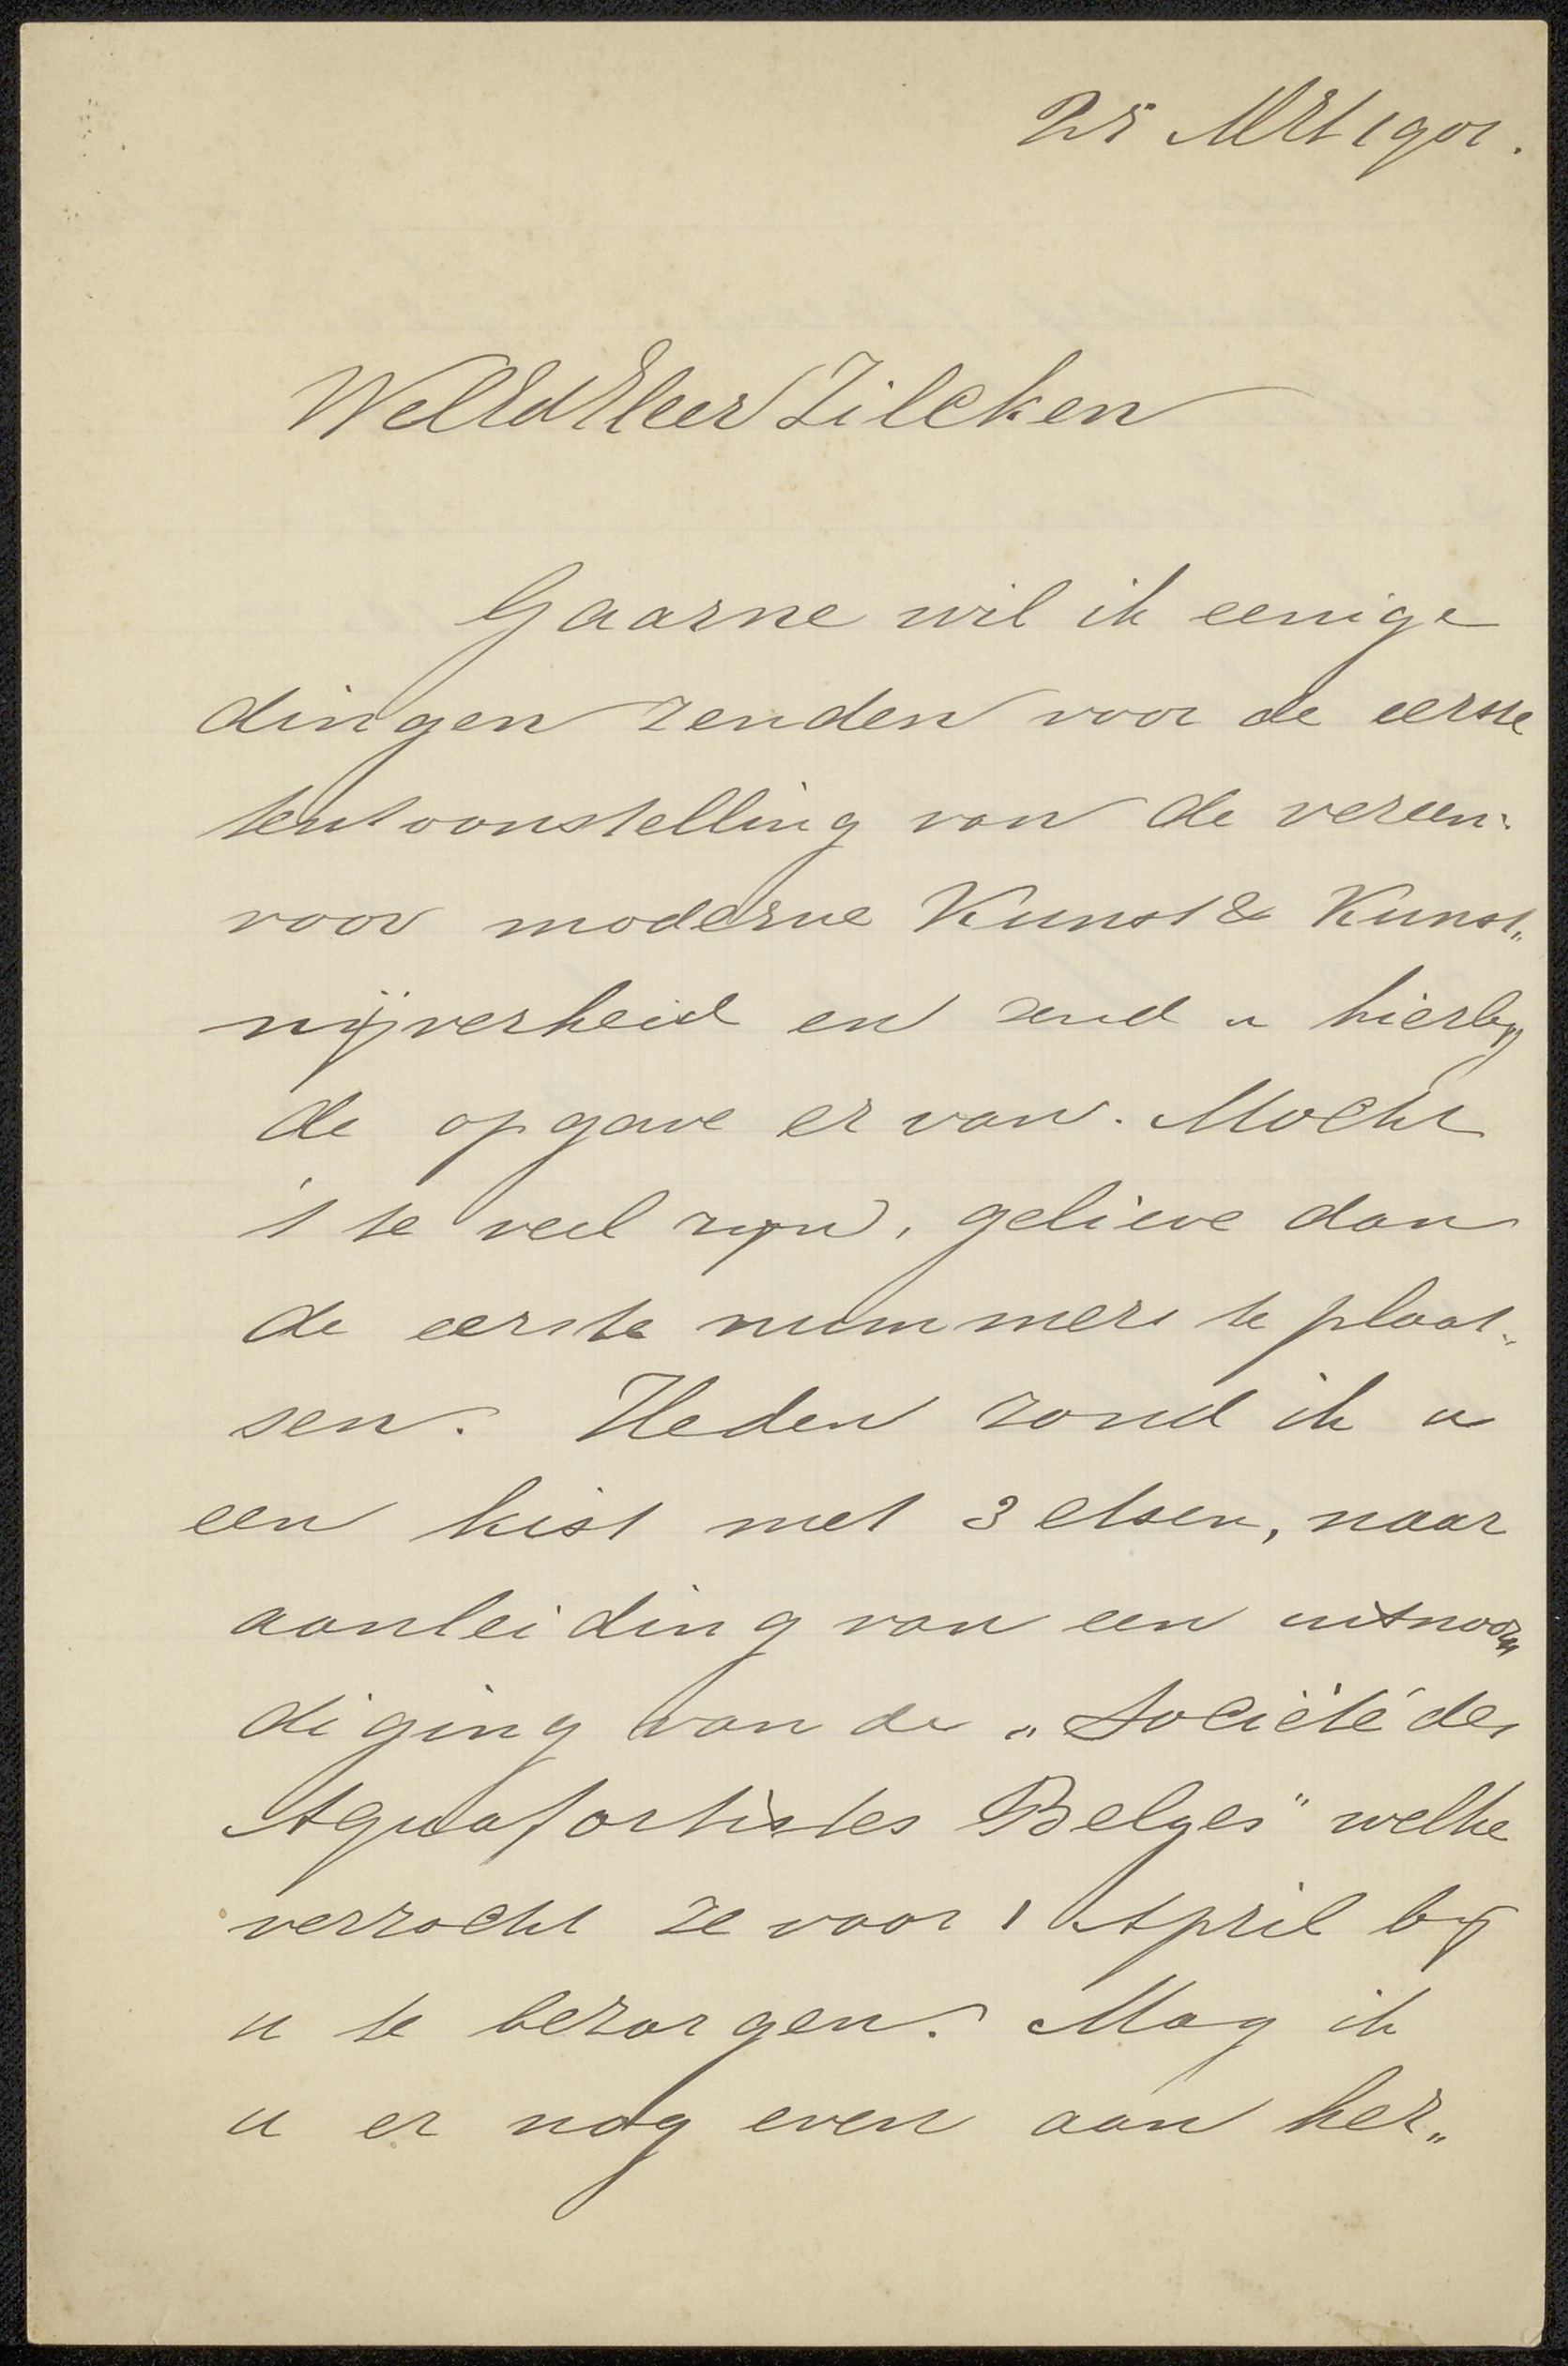 25 Mrt 1901.
WelEdHeer Zilcken
Gaarne wil ik eenige
dingen zenden voor de eerste
tentoonstelling van de vereen:
voor moderne Kunst & Kunst„
nijverheid en zend u hierbij
de opgave er van. Mocht
't te veel zijn, gelieve dan
de eerste nummers te plaat„
sen. Heden zond ik u
een kist met 3 etsen, naar
aanleiding van een uitnoo„
diging van de „Société des
Aquafortistes Belges" welke
verzocht ze voor 1 April bij
u te bezorgen. Mag ik
u er nog even aan her„